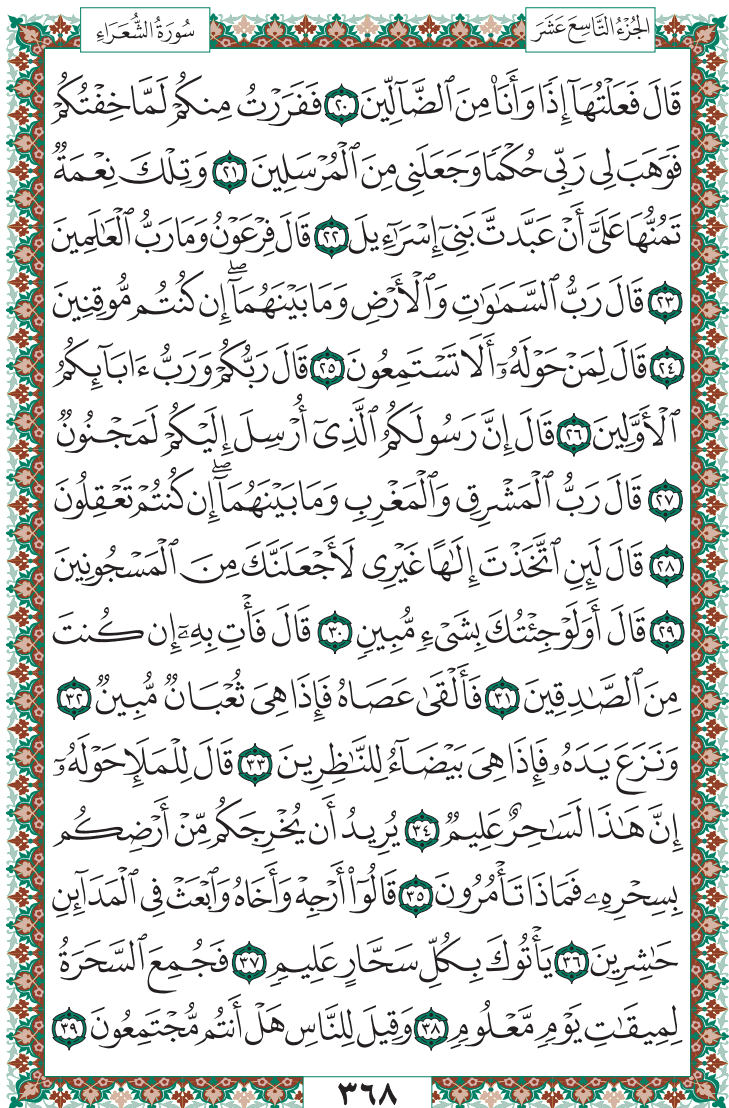 الجُزْءُ التَّاسِعَ عَشَرَ
سُورَةُ الشُّعَرَاءِ
قَالَ فَعَلْتُهَآ إِذٗا وَأَنَا۠ مِنَ ٱلضَّآلِّينَ ٢٠ فَفَرَرۡتُ مِنكُمۡ لَمَّا خِفۡتُكُمۡ
فَوَهَبَ لِي رَبِّي حُكۡمٗا وَجَعَلَنِي مِنَ ٱلۡمُرۡسَلِينَ ٢١ وَتِلۡكَ نِعۡمَةٞ
تَمُنُّهَا عَلَيَّ أَنۡ عَبَّدتَّ بَنِيٓ إِسۡرَٰٓءِيلَ ٢٢ قَالَ فِرۡعَوۡنُ وَمَا رَبُّ ٱلۡعَٰلَمِينَ
٢٣ قَالَ رَبُّ ٱلسَّمَٰوَٰتِ وَٱلۡأَرۡضِ وَمَا بَيۡنَهُمَآۖ إِن كُنتُم مُّوقِنِينَ
٢٤ قَالَ لِمَنۡ حَوۡلَهُۥٓ أَلَا تَسۡتَمِعُونَ ٢٥ قَالَ رَبُّكُمۡ وَرَبُّ ءَابَآئِكُمُ
ٱلۡأَوَّلِينَ ٢٦ قَالَ إِنَّ رَسُولَكُمُ ٱلَّذِيٓ أُرۡسِلَ إِلَيۡكُمۡ لَمَجۡنُونٞ
٢٧ قَالَ رَبُّ ٱلۡمَشۡرِقِ وَٱلۡمَغۡرِبِ وَمَا بَيۡنَهُمَآۖ إِن كُنتُمۡ تَعۡقِلُونَ
٢٨ قَالَ لَئِنِ ٱتَّخَذۡتَ إِلَٰهًا غَيۡرِي لَأَجۡعَلَنَّكَ مِنَ ٱلۡمَسۡجُونِينَ
٢٩ قَالَ أَوَلَوۡ جِئۡتُكَ بِشَيۡءٖ مُّبِينٖ ٣٠ قَالَ فَأۡتِ بِهِۦٓ إِن كُنتَ
مِنَ ٱلصَّٰدِقِينَ ٣١ فَأَلۡقَىٰ عَصَاهُ فَإِذَا هِيَ ثُعۡبَانٞ مُّبِينٞ ٣٢
وَنَزَعَ يَدَهُۥ فَإِذَا هِيَ بَيۡضَآءُ لِلنَّٰظِرِينَ ٣٣ قَالَ لِلۡمَلَإِ حَوۡلَهُۥٓ
إِنَّ هَٰذَا لَسَٰحِرٌ عَلِيمٞ ٣٤ يُرِيدُ أَن يُخۡرِجَكُم مِّنۡ أَرۡضِكُم
بِسِحۡرِهِۦ فَمَاذَا تَأۡمُرُونَ ٣٥ قَالُوٓاْ أَرۡجِهۡ وَأَخَاهُ وَٱبۡعَثۡ فِي ٱلۡمَدَآئِنِ
حَٰشِرِينَ ٣٦ يَأۡتُوكَ بِكُلِّ سَحَّارٍ عَلِيمٖ ٣٧ فَجُمِعَ ٱلسَّحَرَةُ
لِمِيقَٰتِ يَوۡمٖ مَّعۡلُومٖ ٣٨ وَقِيلَ لِلنَّاسِ هَلۡ أَنتُم مُّجۡتَمِعُونَ ٣٩
٣٦٨